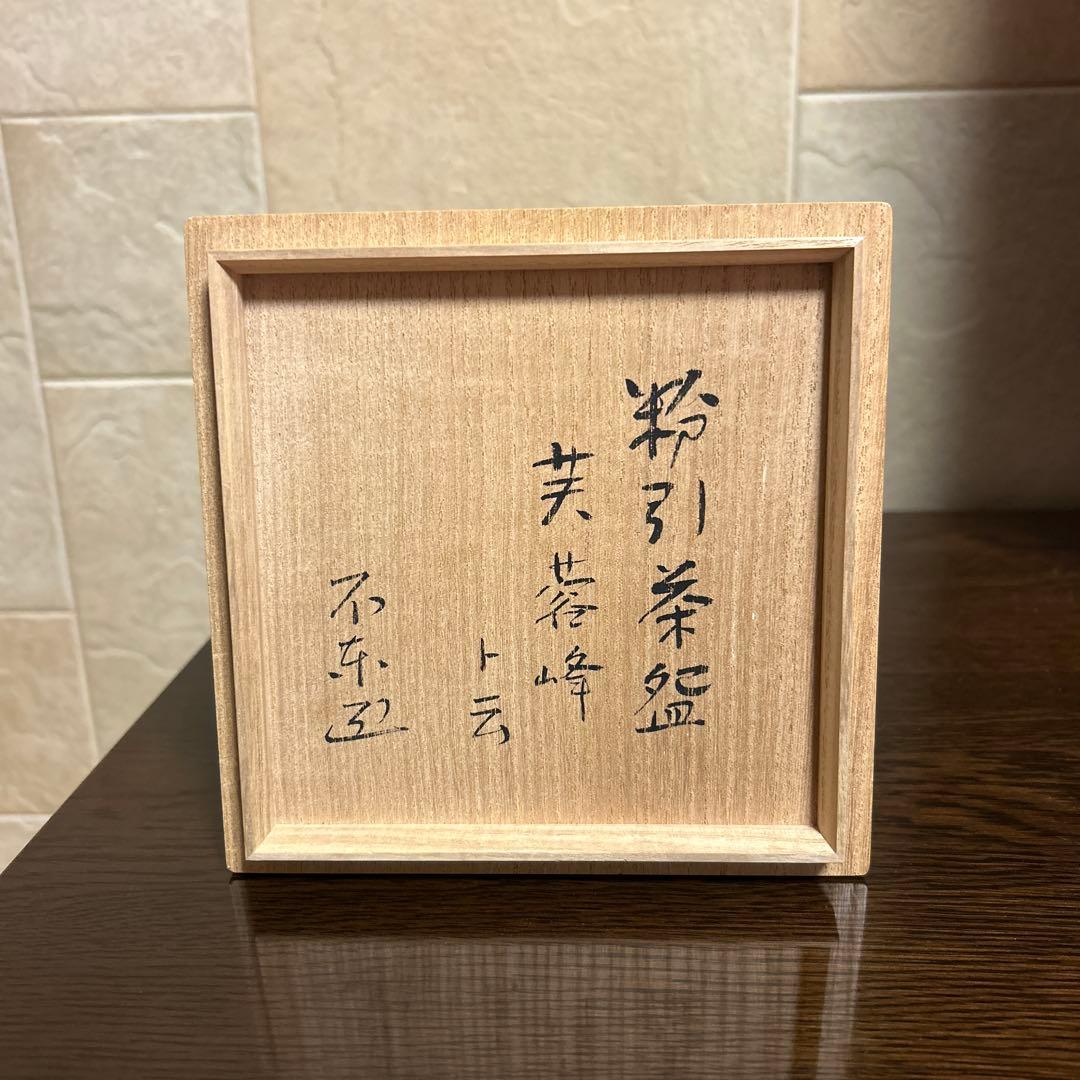 粉引茶盌
芙蓉峰
ト云
不東